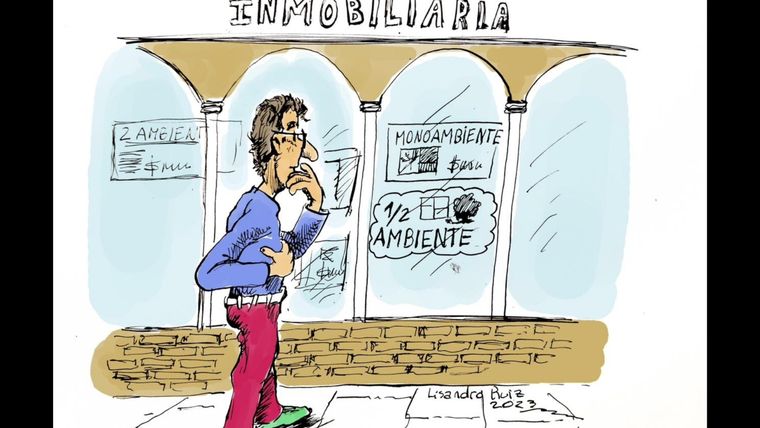 INMOBILIARIA
2 AMBIENT
$
MONOAMBIENTE
$
1/2
AMBIENTE
$
Lisandro Ruiz
2023